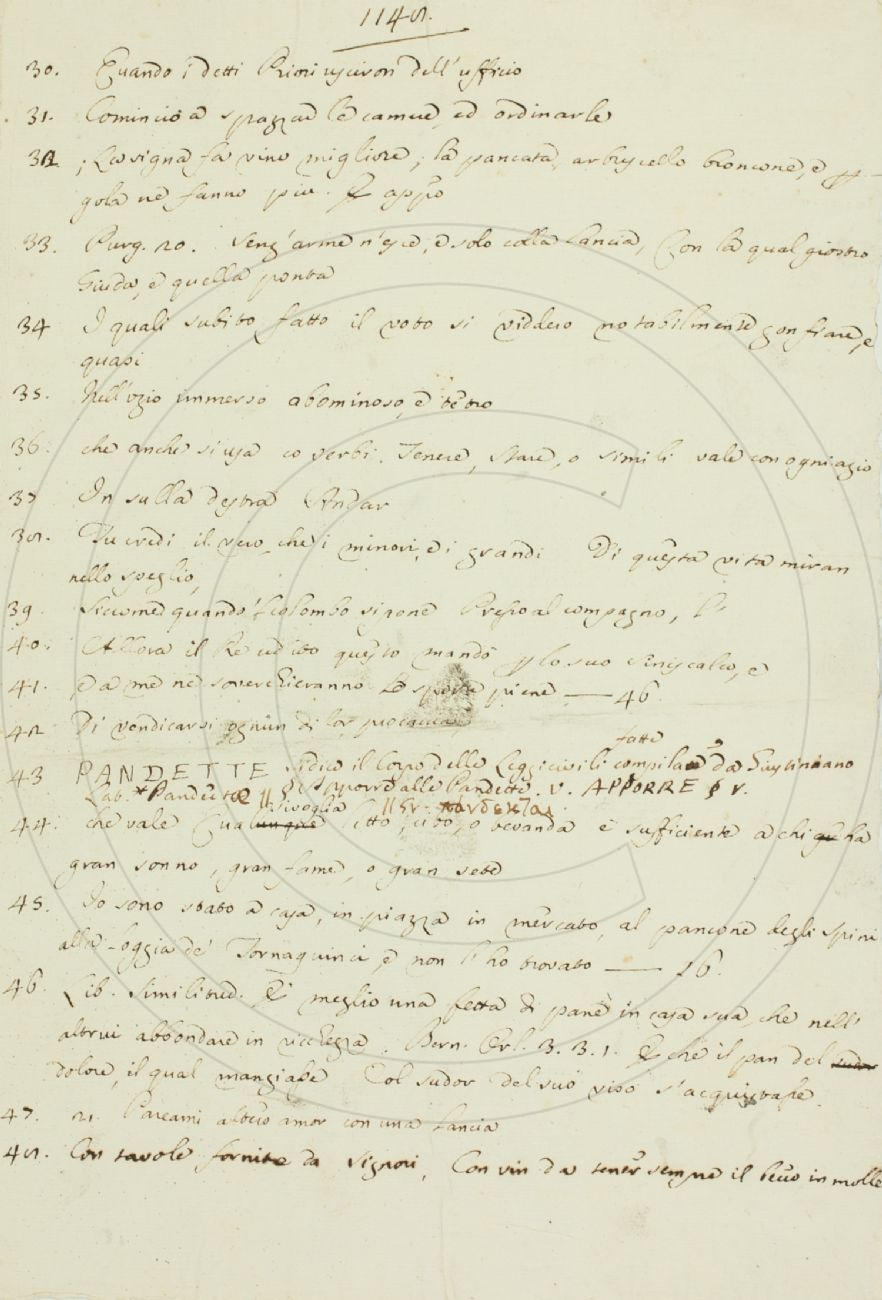 1148.
30. Quando i detti Priori usciron dell'ufficio
31. Cominciò a spazzar le camere, ed ordinarle
32. ; Losigna fa vino migliore; la pancata, arbuscello broncone, e
gola ne fanno piu. E appo
33. Purg. 20. Senz'arme n'esce, e solo colla lancia, Con la qual giostrò
Giuda, e quella ponta
34 I quali subito fatto il voto si viddero notabilmente gonfiare, e
quasi
35. Nell'ozio immerso abominoso, e tetro
36. che anche si usa co verbi. Tenere, Stare, o simili vale con ogni agio
37 In sulla destra Andar
38. Tu credi il vero, che i minori, e i grandi Di questa vita miran
nello speglio,
39. Siccome quando 'l colombo si pone Presso al compagno, l'
40. Allora il Re udito questo mandò per lo suo siniscalco, e
41. e a me ne soverchieranno le sporte piene — 46.
42 Di vendicarsi ognun di lor procaccia
43 PANDETTE si dice il Corpo delle Leggi civili fatte compilare da Giustiniano
Lat. *Pandectae || § Apporre alle Pandette. v. APPORRE § v.
44. che vale Qualsivoglia letto, cibo, o bevanda è sufficiente a chi ha
gran sonno, gran fame, o gran sete
45. Io sono stato a casa, in piazza in mercato, al pancone degli Spini
alla Loggia de' Tornaquinci, e non l'ho trovato — 16.
46. Lib. Similitud. E' meglio una fetta di pane in casa sua, che nell'
altrui abbondare in ricchezza. Bern. Orl. 3. 3. 1. E che il pan del sudor
dolore, il qual mangiasse Col sudor del suo viso s'acquistasse.
47. 21. Pareami altero amor con una lancia
48. Con tavole fornite da Signori, Con vin da tener sempre il becco in molle